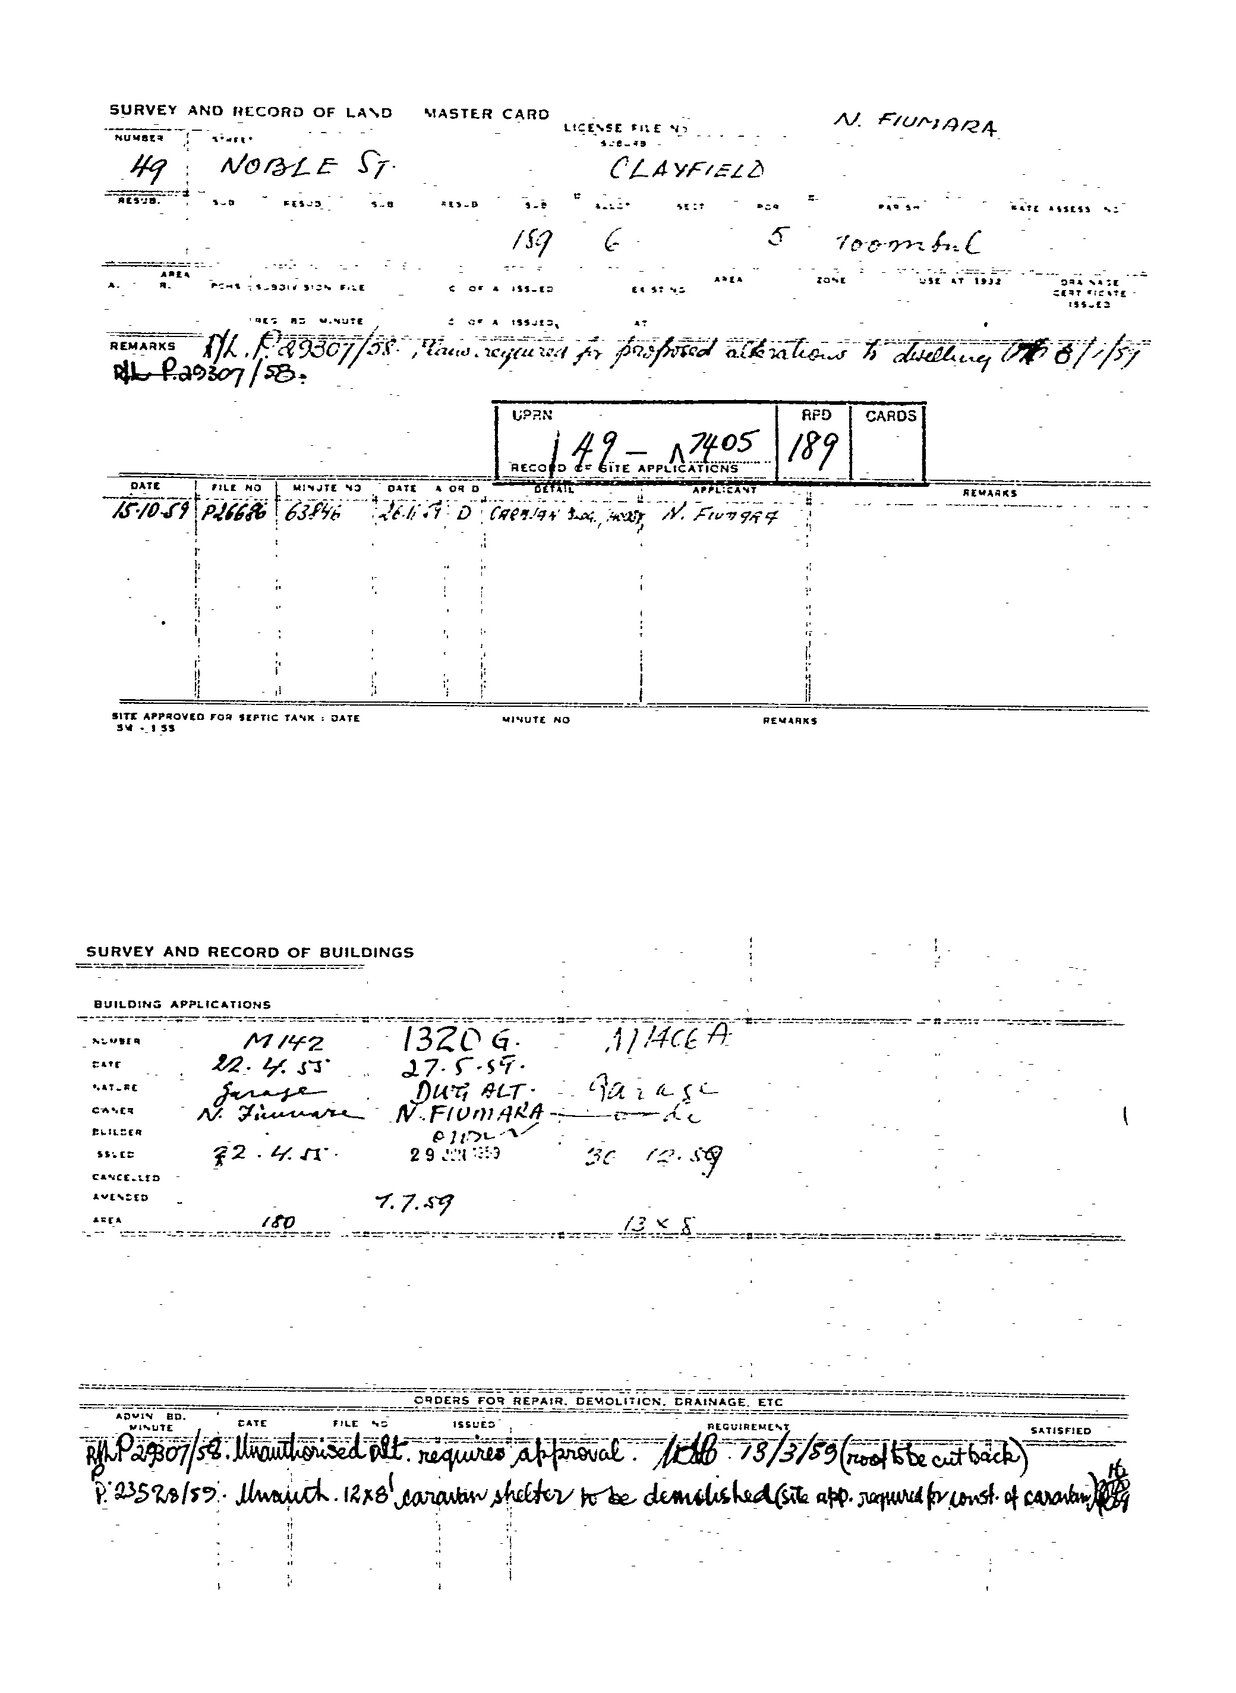 SURVEY AND RECORD OF LAND MASTER CARD
N. FIUMARA
LICENSE FILE NO
NUMBER STREET SUBURB
49 NOBLE ST. CLAYFIELD
RESUB. SUB RESUB SUB RESUB SUB ALLOT SECT POR PARISH RATE ASSESS NO
159 6 5 Toombul
AREA
A. R. SUBDIVISION FILE C OF A ISSUED EXISTING AREA ZONE USE AT 1932 DRAINAGE
CERTIFICATE
ISSUED
REG BD MINUTE C OF A ISSUED, AT
REMARKS R/L. P.29307/58. Plans required for proposed alterations to dwelling 8/1/59
R/L P.29307/58.
UPRN RPD CARDS
149 - 17405 189
RECORD OF SITE APPLICATIONS
DATE FILE NO MINUTE NO DATE A OR D DETAIL APPLICANT REMARKS
15.10.59 P26686 63846 26.11.59 D CARAVAN N. FIUMARA
SITE APPROVED FOR SEPTIC TANK : DATE MINUTE NO REMARKS
SURVEY AND RECORD OF BUILDINGS
BUILDING APPLICATIONS
NUMBER M142 1320 G.
DATE 22.4.55 27.5.59.
NATURE Garage DWG ALT. Garage
OWNER N. Fiumara N. FIUMARA
BUILDER
ISSUED 22.4.55. 29 JUN 1959 30 12.59
CANCELLED
AMENDED 7.7.59
AREA 180 13 x 8
ORDERS FOR REPAIR, DEMOLITION, DRAINAGE, ETC
ADMIN BD.
MINUTE DATE FILE NO ISSUED REQUIREMENT SATISFIED
R/L P29307/58. Unauthorised alt. requires approval. 13/3/59 (roof to be cut back)
P. 23528/59. Unauth. 12x8' caravan shelter to be demolished (site app. required for const. of caravan)